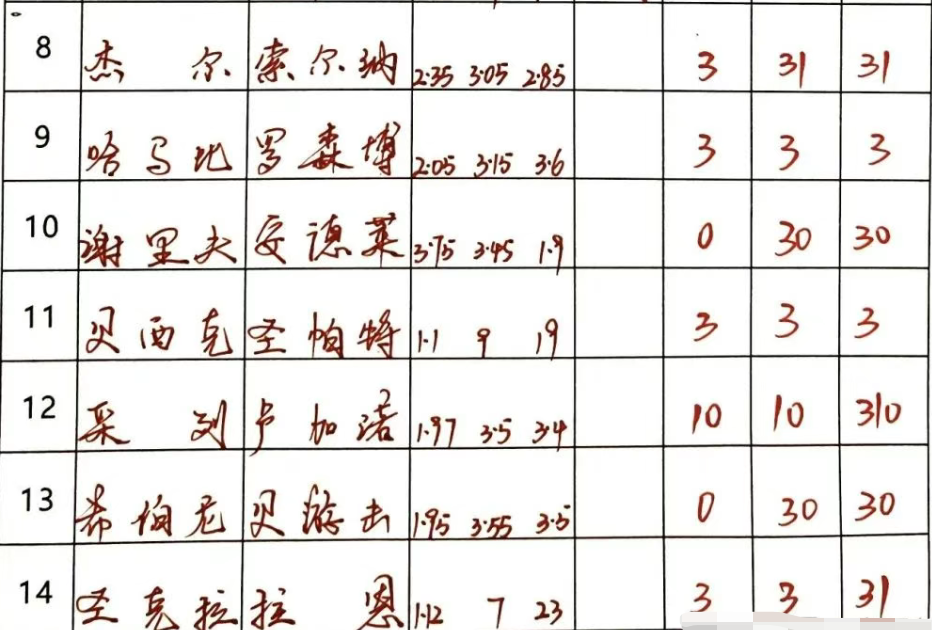 8 杰 尔 索尔纳 2.35 3.05 2.85 3 31 31
9 哈马比 罗森博 2.05 3.15 3.6 3 3 3
10 谢里夫 安德莱 3.75 3.45 1.9 0 30 30
11 贝西克 圣帕特 1.1 9 19 3 3 3
12 采 列 卢加诺 1.97 3.5 3.4 10 10 310
13 希伯尼 贝游击 1.95 3.55 3.5 0 30 30
14 圣克拉 拉 恩 1.12 7 23 3 3 31